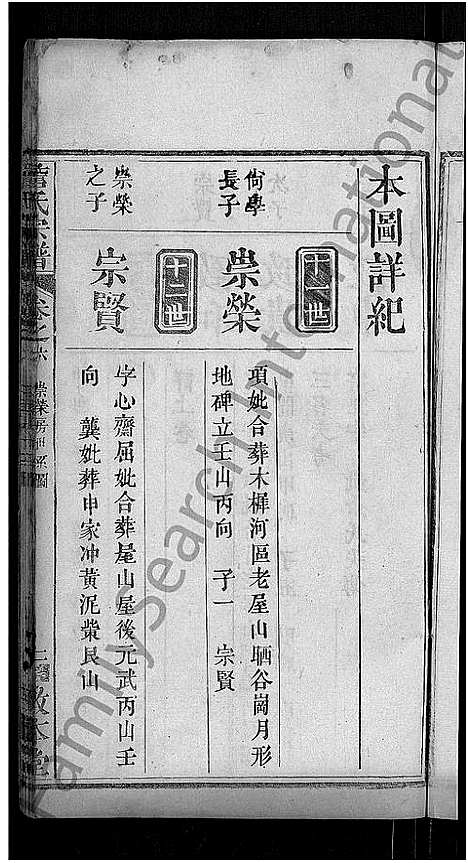 本圖詳紀
十一世
尙學長子
崇榮
項妣合葬木樨河區老屋山晒谷崗月形
地碑立壬山丙向　子一　宗賢
十二世
崇榮之子
宗賢
字心齋屈妣合葬屋山屋後元武丙山壬
向　龔妣葬申家冲黄泥柴艮山
氏宗譜
卷之六
崇榮房世系圖
敦本堂
FamilySearch International